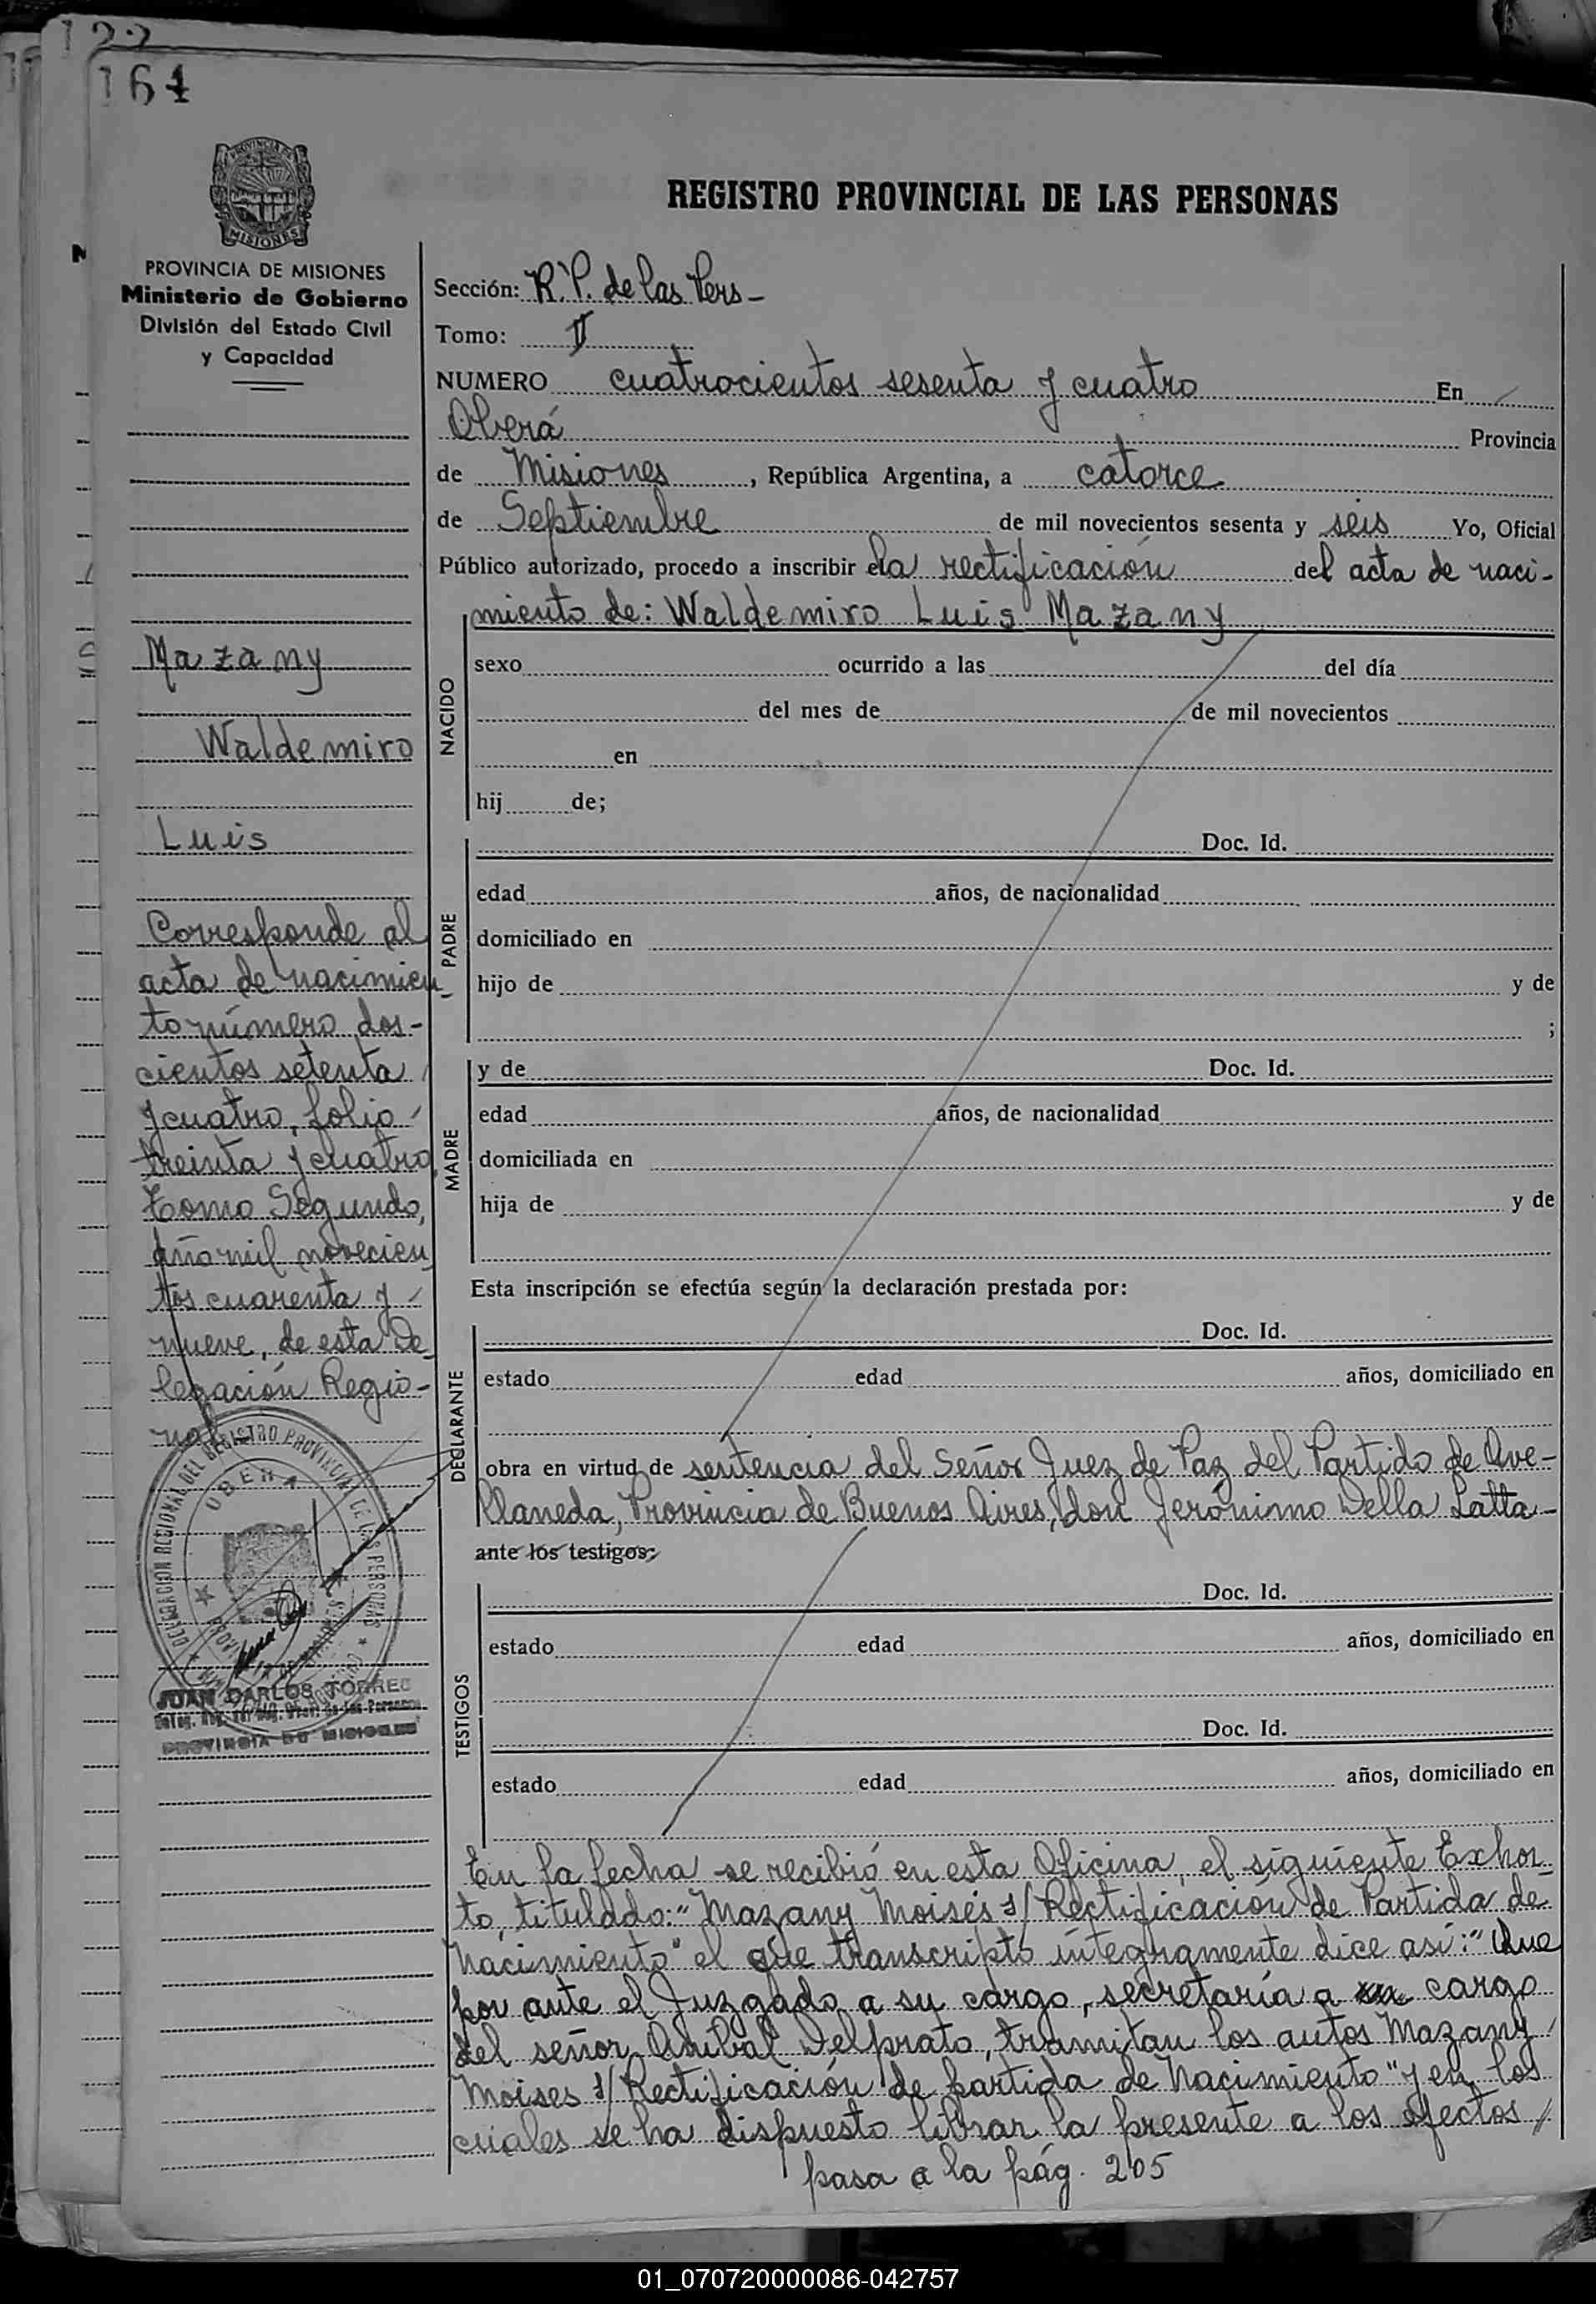 122
164
PROVINCIA DE
MISIONES
REGISTRO PROVINCIAL DE LAS PERSONAS
PROVINCIA DE MISIONES
Ministerio de Gobierno
División del Estado Civil
y Capacidad
Sección: R.P. de las Pers-
Tomo: II
NUMERO cuatrocientos sesenta y cuatro En
Oberá Provincia
de Misiones, República Argentina, a catorce
de Septiembre de mil novecientos sesenta y seis Yo, Oficial
Público autorizado, procedo a inscribir la rectificación del acta de naci-
miento de: Waldemiro Luis Mazany
Mazany
Waldemiro
Luis
Corresponde al
acta de nacimien-
to número dos-
cientos setenta
y cuatro, folio
treinta y cuatro,
Tomo Segundo,
año mil novecien
tos cuarenta y
nueve, de esta De
legación Regio-
nal.-
NACIDO
sexo ocurrido a las del día
del mes de de mil novecientos
en
hij de;
PADRE
Doc. Id.
edad años, de nacionalidad
domiciliado en
hijo de y de
;
MADRE
y de Doc. Id.
edad años, de nacionalidad
domiciliada en
hija de y de
Esta inscripción se efectúa según la declaración prestada por:
DECLARANTE
Doc. Id.
estado edad años, domiciliado en
obra en virtud de sentencia del Señor Juez de Paz del Partido de Ave-
llaneda, Provincia de Buenos Aires, don Jerónimo Della Latta-
ante los testigos:
TESTIGOS
Doc. Id.
estado edad años, domiciliado en
Doc. Id.
estado edad años, domiciliado en
DELEGACION REGIONAL DEL REGISTRO PROVINCIAL DE LAS PERSONAS
OBERA
JUAN CARLOS TORRES
PROVINCIA DE MISIONES
En la fecha se recibió en esta Oficina, el siguiente Exhor-
to, titulado: "Mazany Moisés s/ Rectificación de Partida de
Nacimiento" el que transcripto íntegramente dice así: "Que
por ante el Juzgado a su cargo, secretaría a cargo
del señor Anibal Delprato, tramitan los autos Mazany
Moises s/ Rectificación de partida de Nacimiento" y en los
cuales se ha dispuesto librar la presente a los efectos //
pasa a la pág. 205
01_070720000086-042757